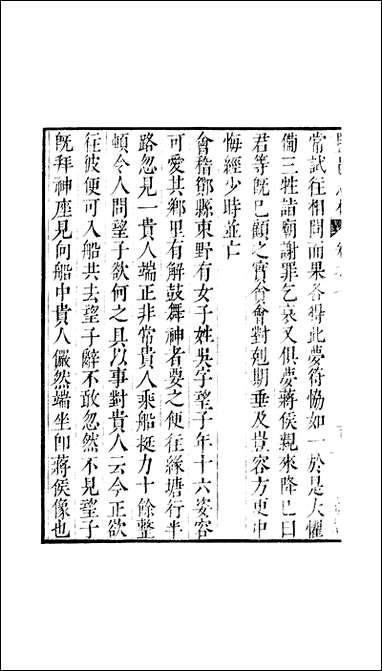 常試往相問而果各得此夢符恊如一於是大懼
僃三牲詣廟謝罪乞哀又俱夢蔣侯親來降巳曰
君等旣巳顧之實貪會對剋期垂及豈容方更中
悔經少時並亡
會稽鄮縣東野有女子姓吳字望子年十六姿容
可愛其鄉里有解鼓舞神者要之便往緣塘行半
路忽見一貴人端正非常貴人乘船挺力十餘整
頓令人問望子欲何之具以事對貴人云今正欲
往彼便可入船共去望子辭不敢忽然不見望子
旣拜神座見向船中貴人儼然端坐卽蔣侯像也